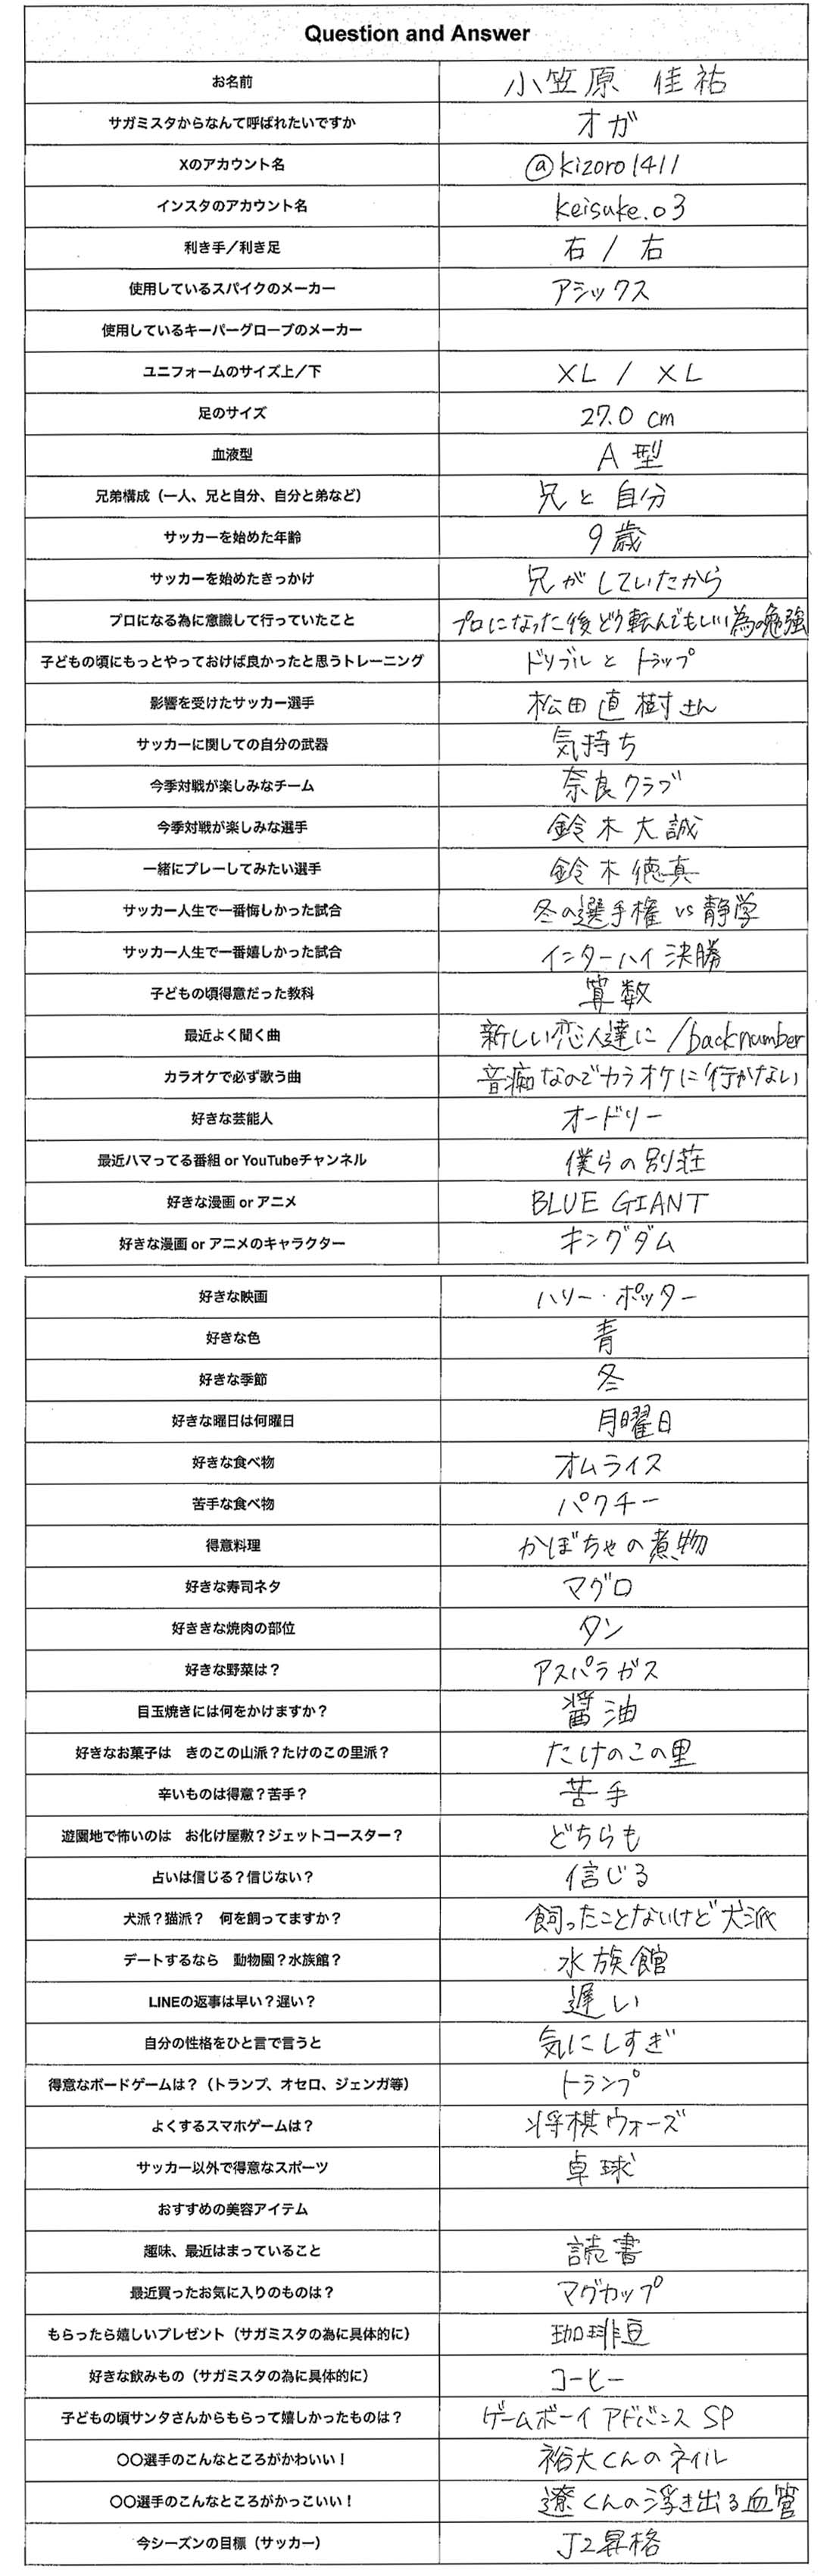 Question and Answer
お名前 小笠原 佳祐
サガミスタからなんて呼ばれたいですか オガ
Xのアカウント名 @kizoro1411
インスタのアカウント名 keisuke.03
利き手/利き足 右 / 右
使用しているスパイクのメーカー アシックス
使用しているキーパーグローブのメーカー
ユニフォームのサイズ上/下 XL / XL
足のサイズ 27.0 cm
血液型 A 型
兄弟構成（一人、兄と自分、自分と弟など） 兄と自分
サッカーを始めた年齢 9歳
サッカーを始めたきっかけ 兄がしていたから
プロになる為に意識して行っていたこと プロになった後どう転んでもいい為の勉強
子どもの頃にもっとやっておけば良かったと思うトレーニング ドリブルと トラップ
影響を受けたサッカー選手 松田直樹さん
サッカーに関しての自分の武器 気持ち
今季対戦が楽しみなチーム 奈良クラブ
今季対戦が楽しみな選手 鈴木大誠
一緒にプレーしてみたい選手 鈴木徳真
サッカー人生で一番悔しかった試合 冬の選手権 vs 静学
サッカー人生で一番嬉しかった試合 インターハイ 決勝
子どもの頃得意だった教科 算数
最近よく聞く曲 新しい恋人達に /back number
カラオケで必ず歌う曲 音痴なのでカラオケに行かない
好きな芸能人 オードリー
最近ハマってる番組 or YouTubeチャンネル 僕らの別荘
好きな漫画 or アニメ BLUE GIANT
好きな漫画 or アニメのキャラクター キングダム
好きな映画 ハリー・ポッター
好きな色 青
好きな季節 冬
好きな曜日は何曜日 月曜日
好きな食べ物 オムライス
苦手な食べ物 パクチー
得意料理 かぼちゃの煮物
好きな寿司ネタ マグロ
好ききな焼肉の部位 タン
好きな野菜は？ アスパラガス
目玉焼きには何をかけますか？ 醤油
好きなお菓子は　きのこの山派？たけのこの里派？ たけのこの里
辛いものは得意？苦手？ 苦手
遊園地で怖いのは　お化け屋敷？ジェットコースター？ どちらも
占いは信じる？信じない？ 信じる
犬派？猫派？　何を飼ってますか？ 飼ったことないけど犬派
デートするなら　動物園？水族館？ 水族館
LINEの返事は早い？遅い？ 遅い
自分の性格をひと言で言うと 気にしすぎ
得意なボードゲームは？（トランプ、オセロ、ジェンガ等） トランプ
よくするスマホゲームは？ 将棋ウォーズ
サッカー以外で得意なスポーツ 卓球
おすすめの美容アイテム
趣味、最近はまっていること 読書
最近買ったお気に入りのものは？ マグカップ
もらったら嬉しいプレゼント（サガミスタの為に具体的に） 珈琲豆
好きな飲みもの（サガミスタの為に具体的に） コーヒー
子どもの頃サンタさんからもらって嬉しかったものは？ ゲームボーイ アドバンス SP
〇〇選手のこんなところがかわいい！ 裕大くんのネイル
〇〇選手のこんなところがかっこいい！ 遼くんの浮き出る血管
今シーズンの目標（サッカー） J2昇格